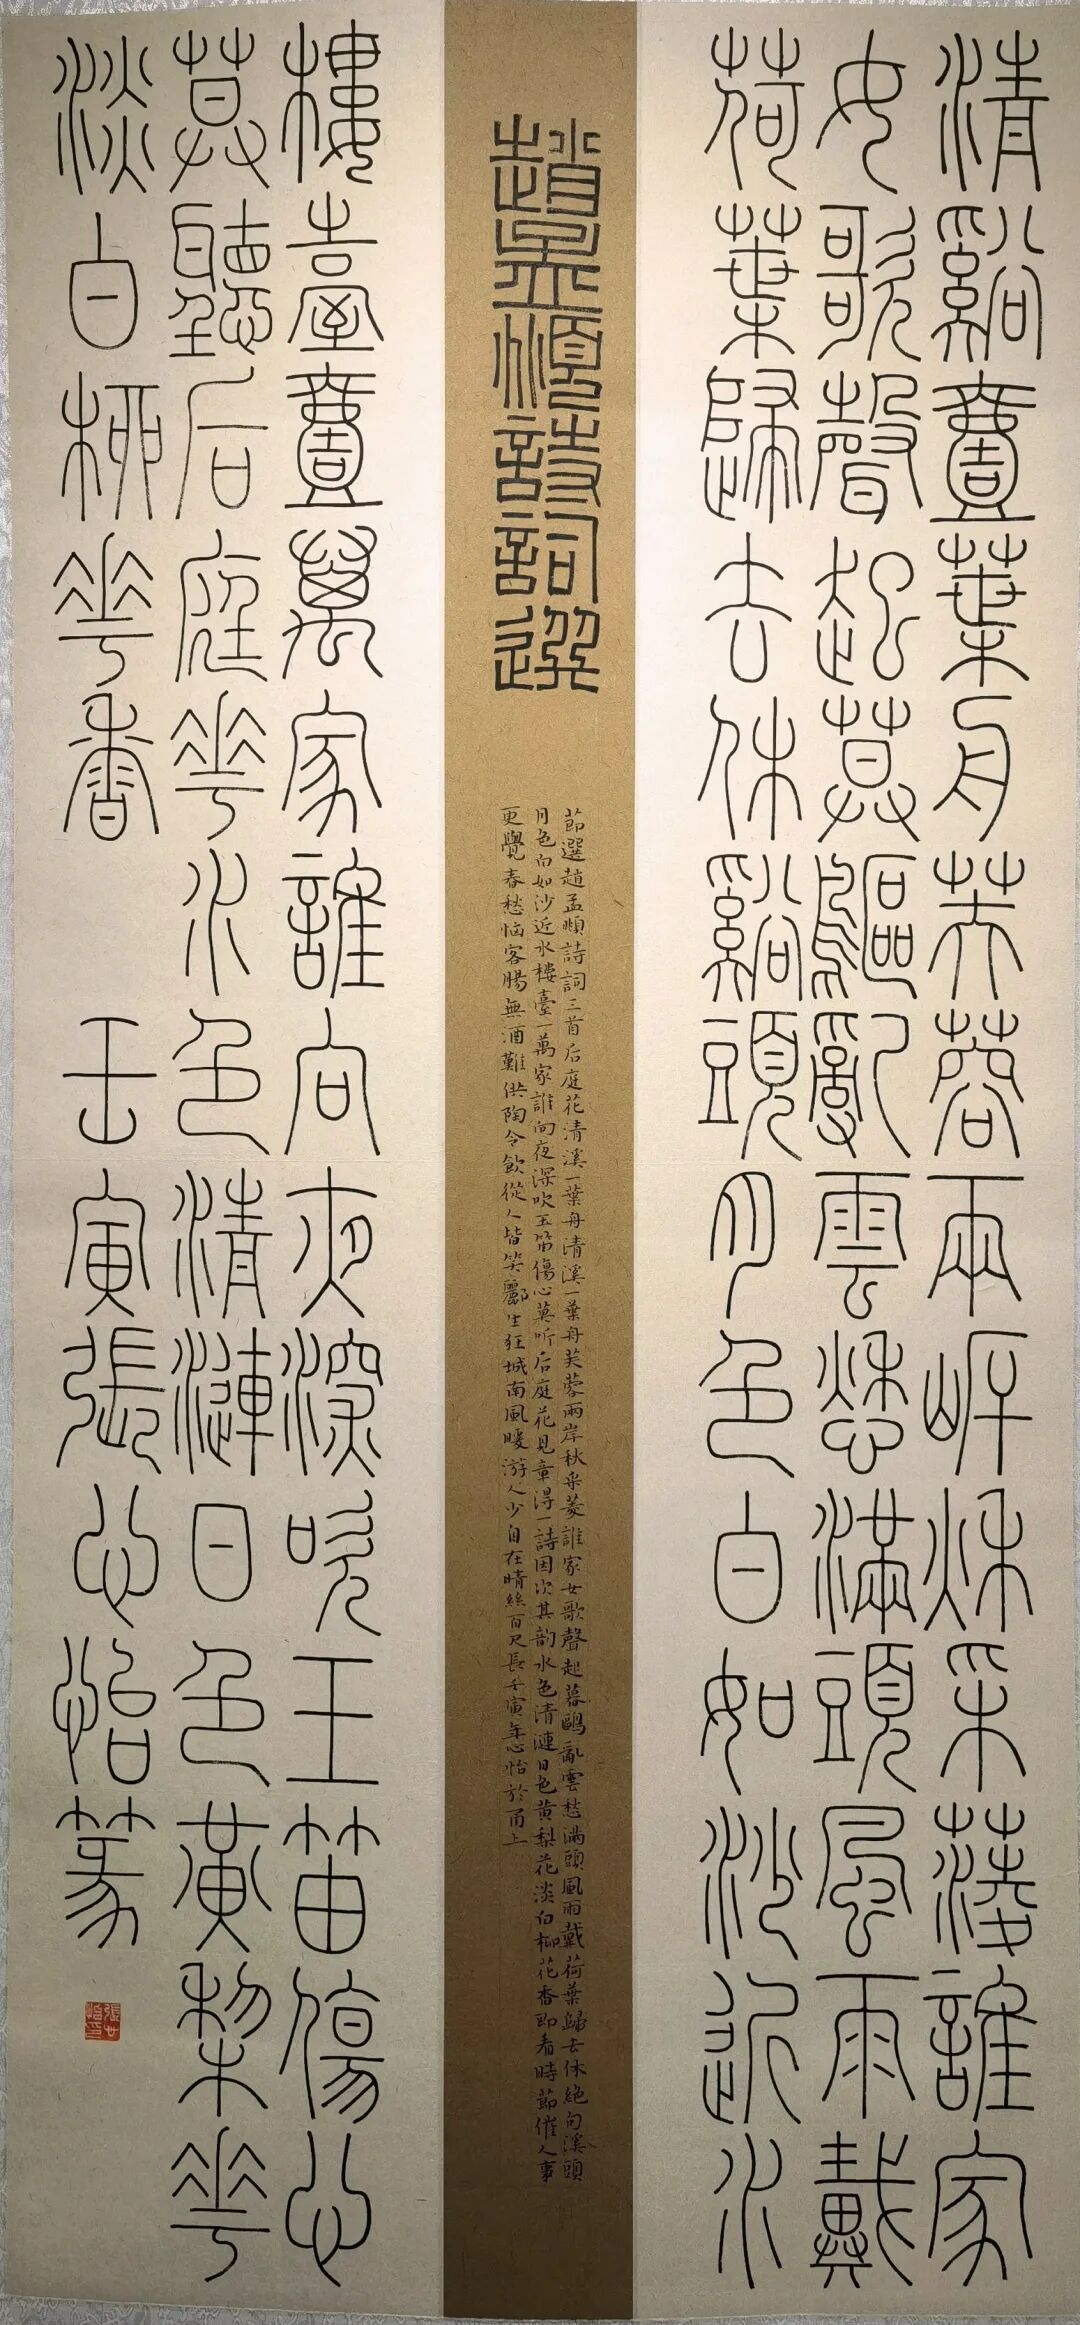 清谿壹葉舟芙蓉兩岸秌采蓤誰家
女歌聲起莫鷗亂雲愁滿頭風雨戴
荷葉歸去休谿頭月色白如沙近水
趙孟頫詩詞選
節選趙孟頫詩詞三首后庭花清溪一葉舟清溪一葉舟芙蓉兩岸秋采菱誰家女歌聲起暮鷗亂雲愁滿頭風雨戴荷葉歸去休絕句溪頭
月色白如沙近水樓臺一萬家誰向夜深吹玉笛傷心莫听后庭花見章得一詩因次其韵水色清漣日色黃梨花淡白柳花香即看時節催人事
更覺春愁惱客腸無酒難供陶令飲從人皆笑酈生狂城南風暖游人少自在晴絲百尺長壬寅年心怡於甬上
樓臺壹萬家誰向夜深吹玉笛傷心
莫聽后庭花水色清漣日色黃梨花
淡白柳花香 壬寅張心怡篆